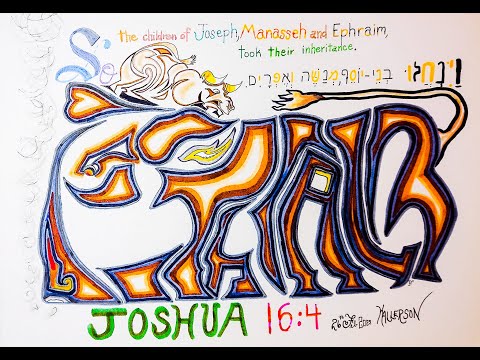 So the children of Joseph, Manasseh and Ephraim,
took their inheritance.
וַיִּנְחֲלוּ בְנֵי-יוֹסֵף, מְנַשֶּׁה וְאֶפְרָיִם.
JOSHUA 16:4
KALLERSON